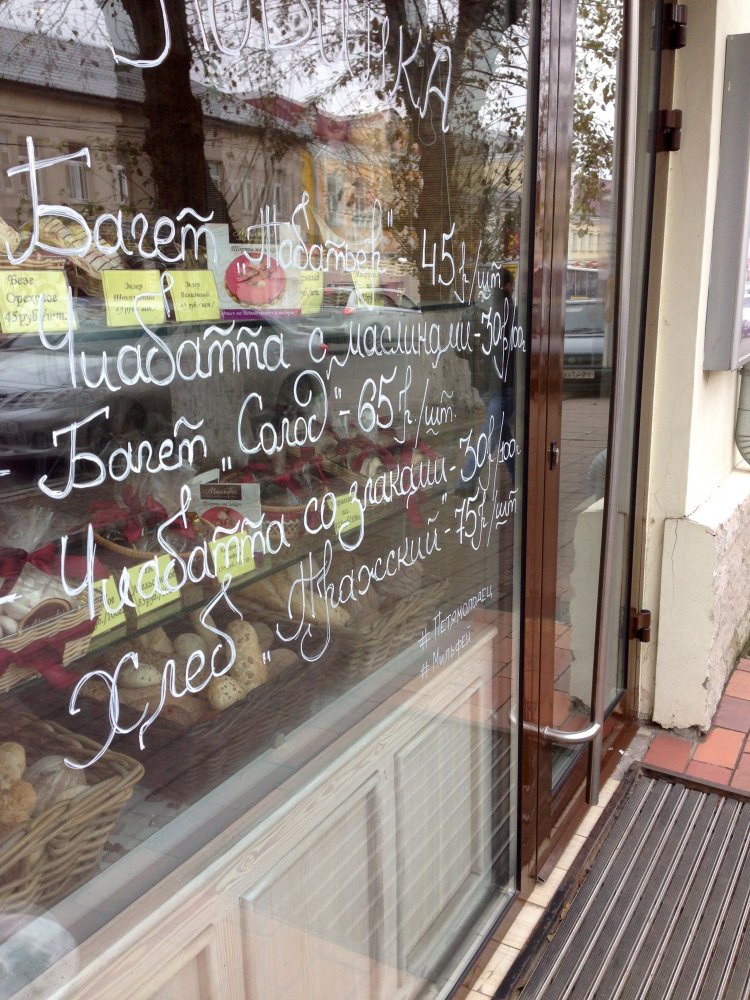 Новинка
Багет "Набатьер" 45р/шт.
Чиабатта с маслинами - 30р/100г
- Багет "Солод" - 65р./шт.
- Чиабатта со злаками - 30р/100г
Хлеб "Пражский" - 75р/шт
#Петямолодец
#Мильфей
Безе
Ореховое
45руб/шт.
Эклер
Шоколадный
45руб/шт.
Эклер
Ванильный
45руб/шт.